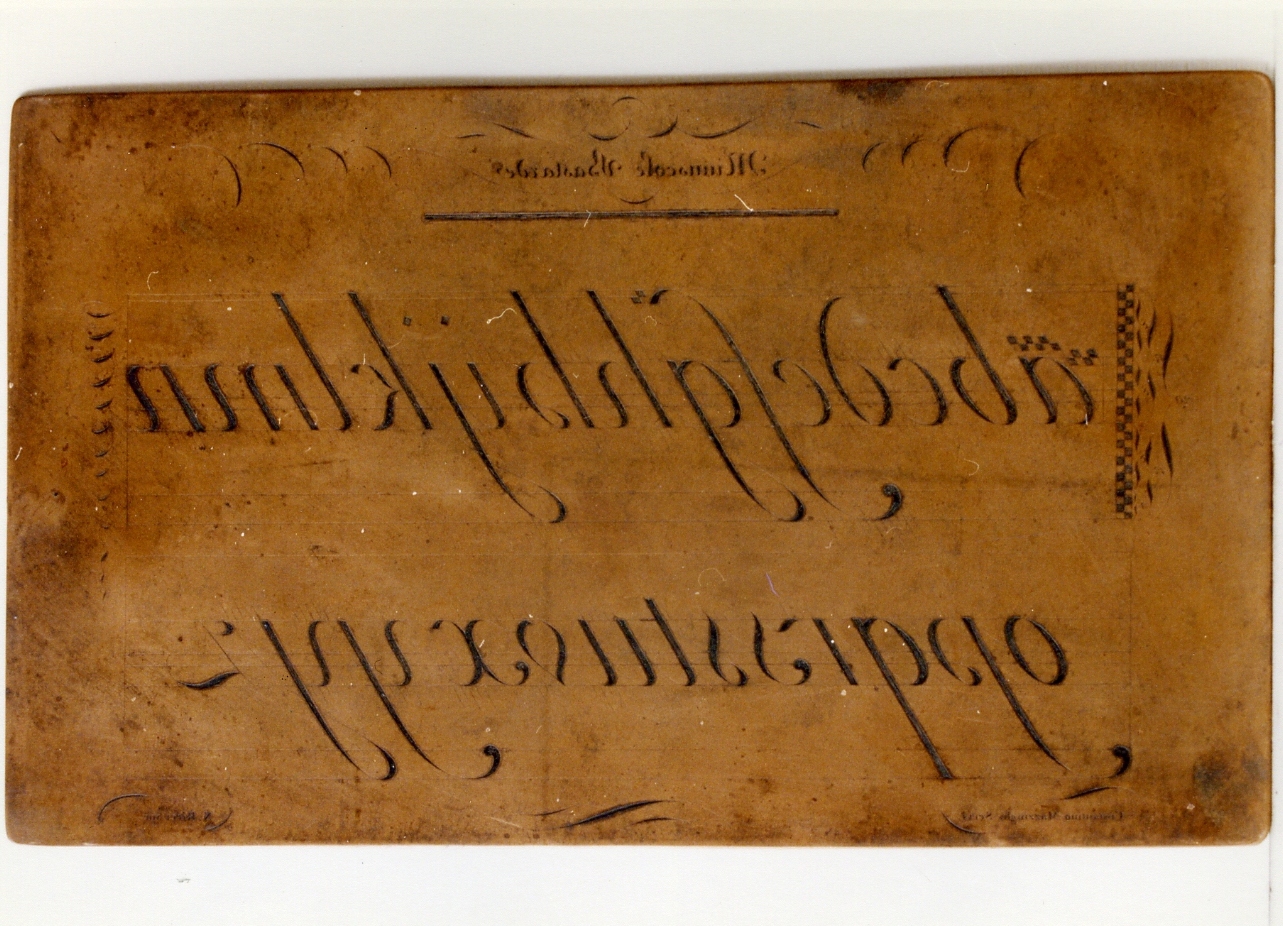 Minuscole Bastarde
abcdefghhijklmn
opqrsstuvxyyz